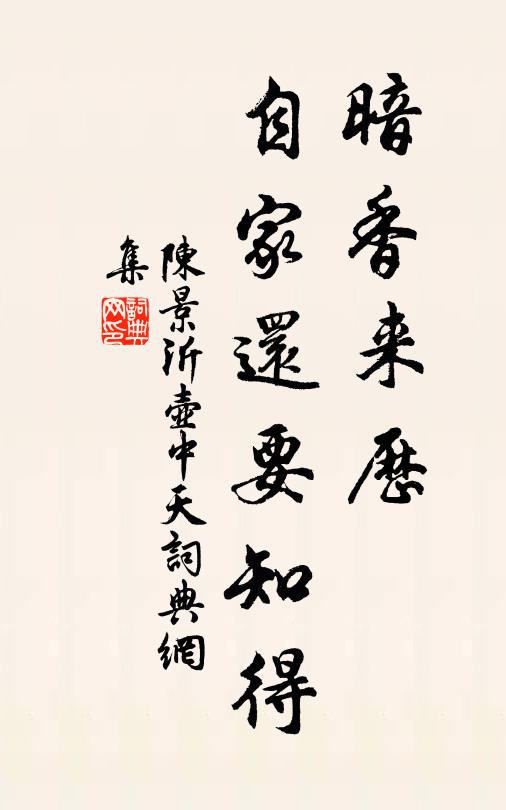 暗香来歷
自家還要知得
陳景沂壺中天詞典網
集
詞典网印